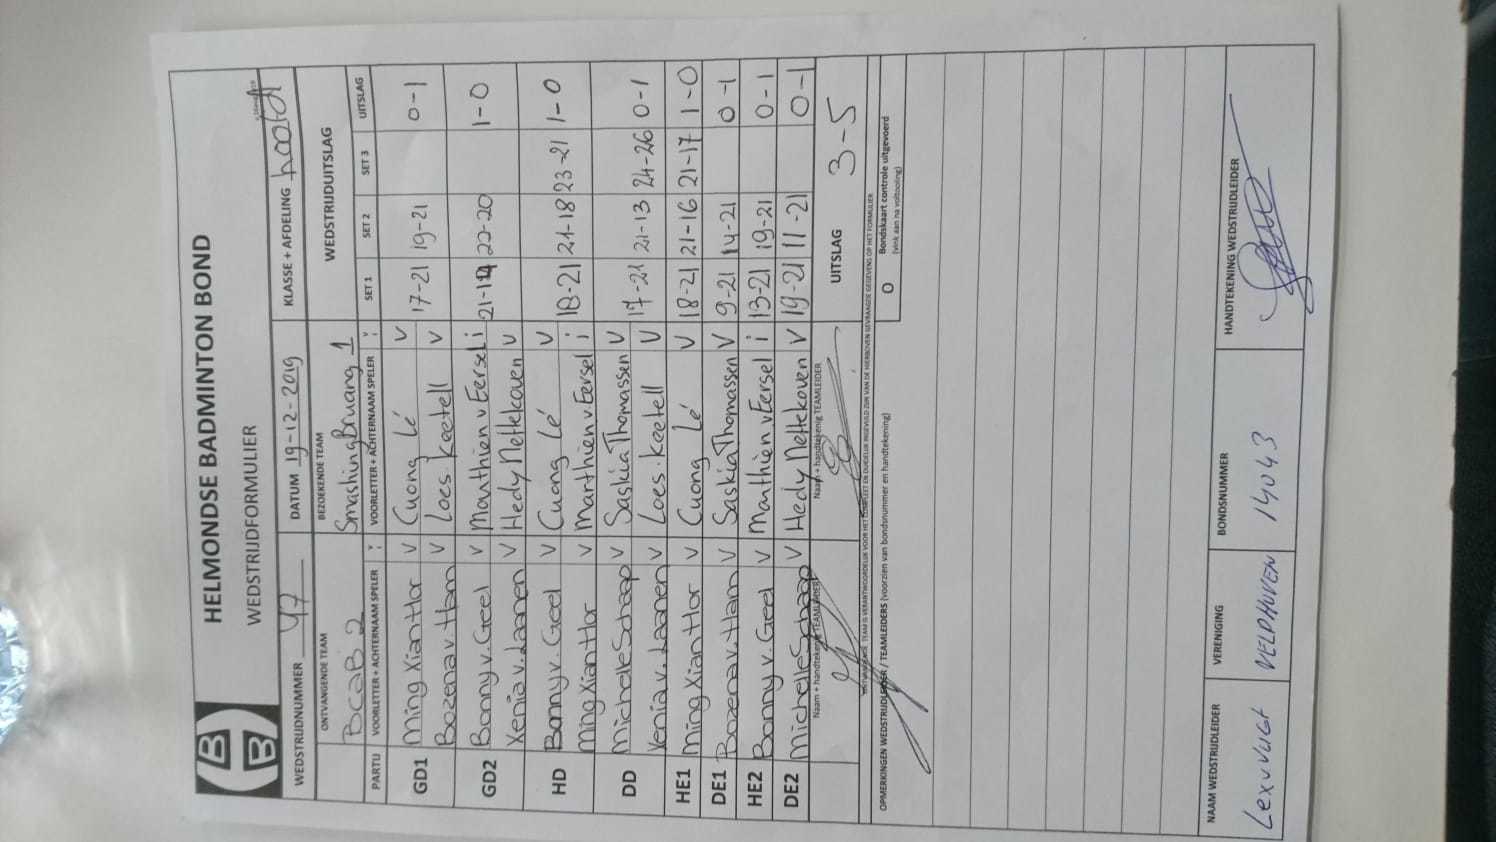 HELMONDSE BADMINTON BOND
WEDSTRIJDFORMULIER
WEDSTRIJDNUMMER 47 DATUM 19-12-2019 KLASSE + AFDELING hoofd
ONTVANGENDE TEAM BEZOEKENDE TEAM WEDSTRIJDUITSLAG
BCAB 2 Smashing Bruang 1
PARTIJ VOORLETTER + ACHTERNAAM SPELER V VOORLETTER + ACHTERNAAM SPELER V i SET 1 SET 2 SET 3 UITSLAG
GD1 Ming Xian Hor V Cuong Lé V 17-21 19-21 0-1
Bozena v. Ham V Loes Keetell V
GD2 Bonny v. Geel V Marthien v Eersel i 21-19 22-20 1-0
Xenia v. Laanen V Hedy Nettekoven V
HD Bonny v. Geel V Cuong Lé V 18-21 21-18 23-21 1-0
Ming Xian Hor V Marthien v Eersel i
DD Michelle Schaap V Saskia Thomassen V 17-21 21-13 24-26 0-1
Xenia v. Laanen V Loes Keetell V
HE1 Ming Xian Hor V Cuong Lé V 18-21 21-16 21-17 1-0
DE1 Bozena v. Ham V Saskia Thomassen V 9-21 14-21 0-1
HE2 Bonny v. Geel V Marthien v Eersel i 13-21 19-21 0-1
DE2 Michelle Schaap V Hedy Nettekoven V 19-21 11-21 0-1
Naam + handtekening TEAMLEIDER Naam + handtekenig TEAMLEIDER UITSLAG 3-5
ONTVANGENDE TEAM IS VERANTWOORDELIJK VOOR HET COMPLEET EN DUIDELIJK INGEVULD ZIJN VAN DE HIERBOVEN GEVRAAGDE GEGEVENS OP HET FORMULIER
OPMERKINGEN WEDSTRIJDLEIDER / TEAMLEIDERS (voorzien van bondsnummer en handtekening) O Bondskaart controle uitgevoerd
(vink aan na voltooiing)
NAAM WEDSTRIJDLEIDER VERENIGING BONDSNUMMER HANDTEKENING WEDSTRIJDLEIDER
Lex v Vugt VELDHOVEN 14043